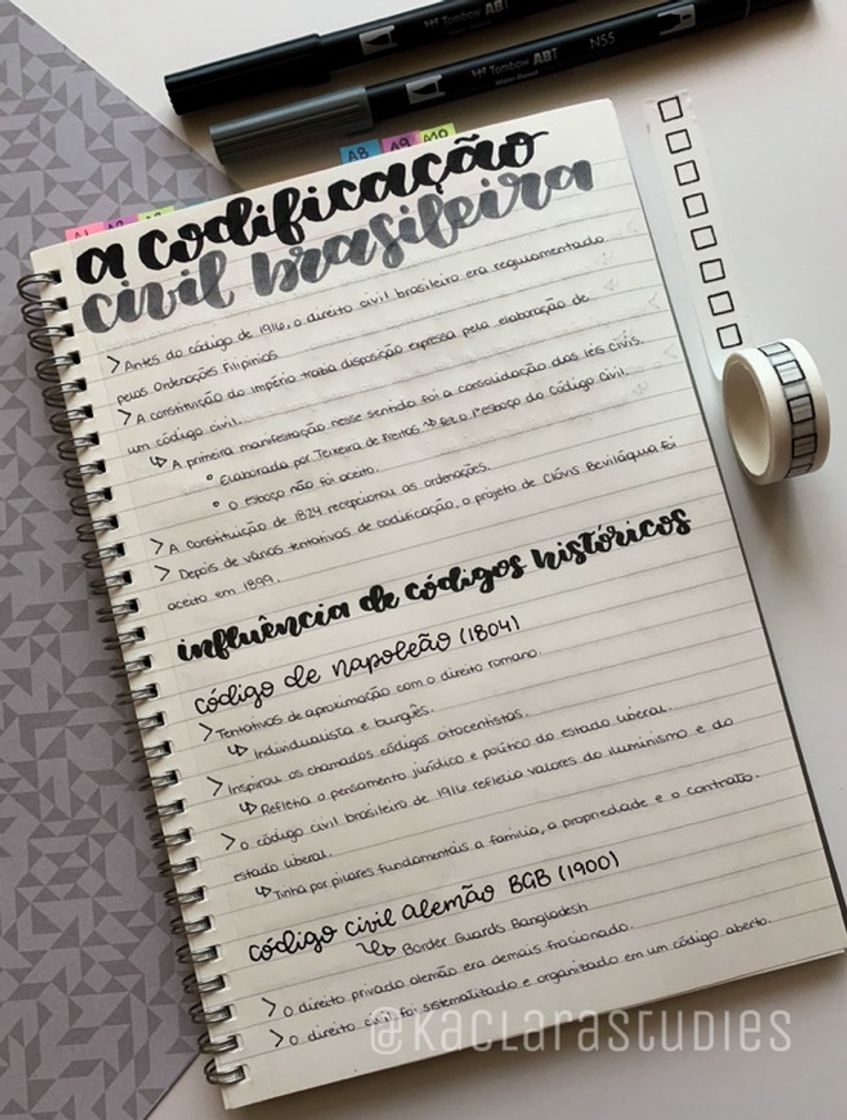 Tombow ABT
Tombow ABT N55
Water-Based
A8 A9 A10
A1 A2
a codificação
civil brasileira
> Antes do código de 1916, o direito civil brasileiro era regulamentado
pelas Ordenações Filipinas
> A constituição do império trazia disposição expressa pela elaboração de
um código civil.
↳ A primeira manifestação nesse sentido foi a consolidação das leis civis.
° Elaborada por Teixeira de Freitas ~> fez o 1° esboço do Código Civil.
° O esboço não foi aceito.
> A constituição de 1824 recepcionou as ordenações.
> Depois de várias tentativas de codificação, o projeto de Clóvis Beviláqua foi
aceito em 1899.
influência de códigos históricos
código de Napoleão (1804)
> Tentativas de aproximação com o direito romano.
↳ Individualista e burguês.
> Inspirou os chamados códigos oitocentistas.
↳ Refletia o pensamento jurídico e político do estado liberal.
> O código civil brasileiro de 1916 refletia valores do iluminismo e do
estado liberal.
↳ Tinha por pilares fundamentais a família, a propriedade e o contrato.
código civil alemão BGB (1900)
↳ Border Guards Bangladesh
> O direito privado alemão era demais fracionado.
> O direito civil foi sistematizado e organizado em um código aberto.
@kaclarastudies